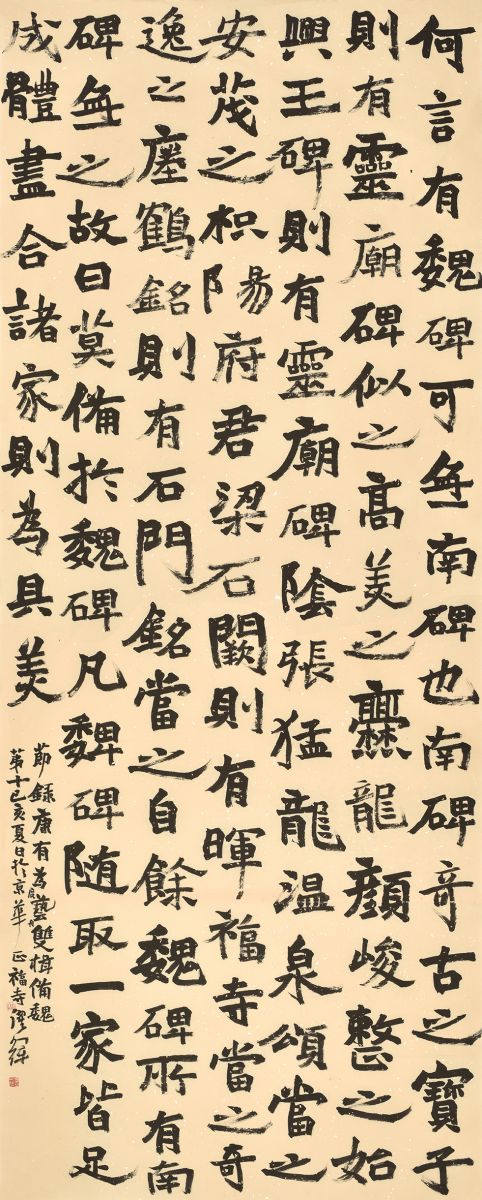 何言有魏碑可無南碑也南碑奇古之寶子
則有靈廟碑似之高美之爨龍顏峻整之始
興王碑則有靈廟碑陰張猛龍溫泉頌當之
安茂之枳陽府君梁石闕則有暉福寺當之奇
逸之瘞鶴銘則有石門銘當之自餘魏碑所有南
碑無之故曰莫備於魏碑凡魏碑隨取一家皆足
成體盡合諸家則為具美
節錄康有為廣藝雙楫備魏
第十己亥夏日於京華正福寺